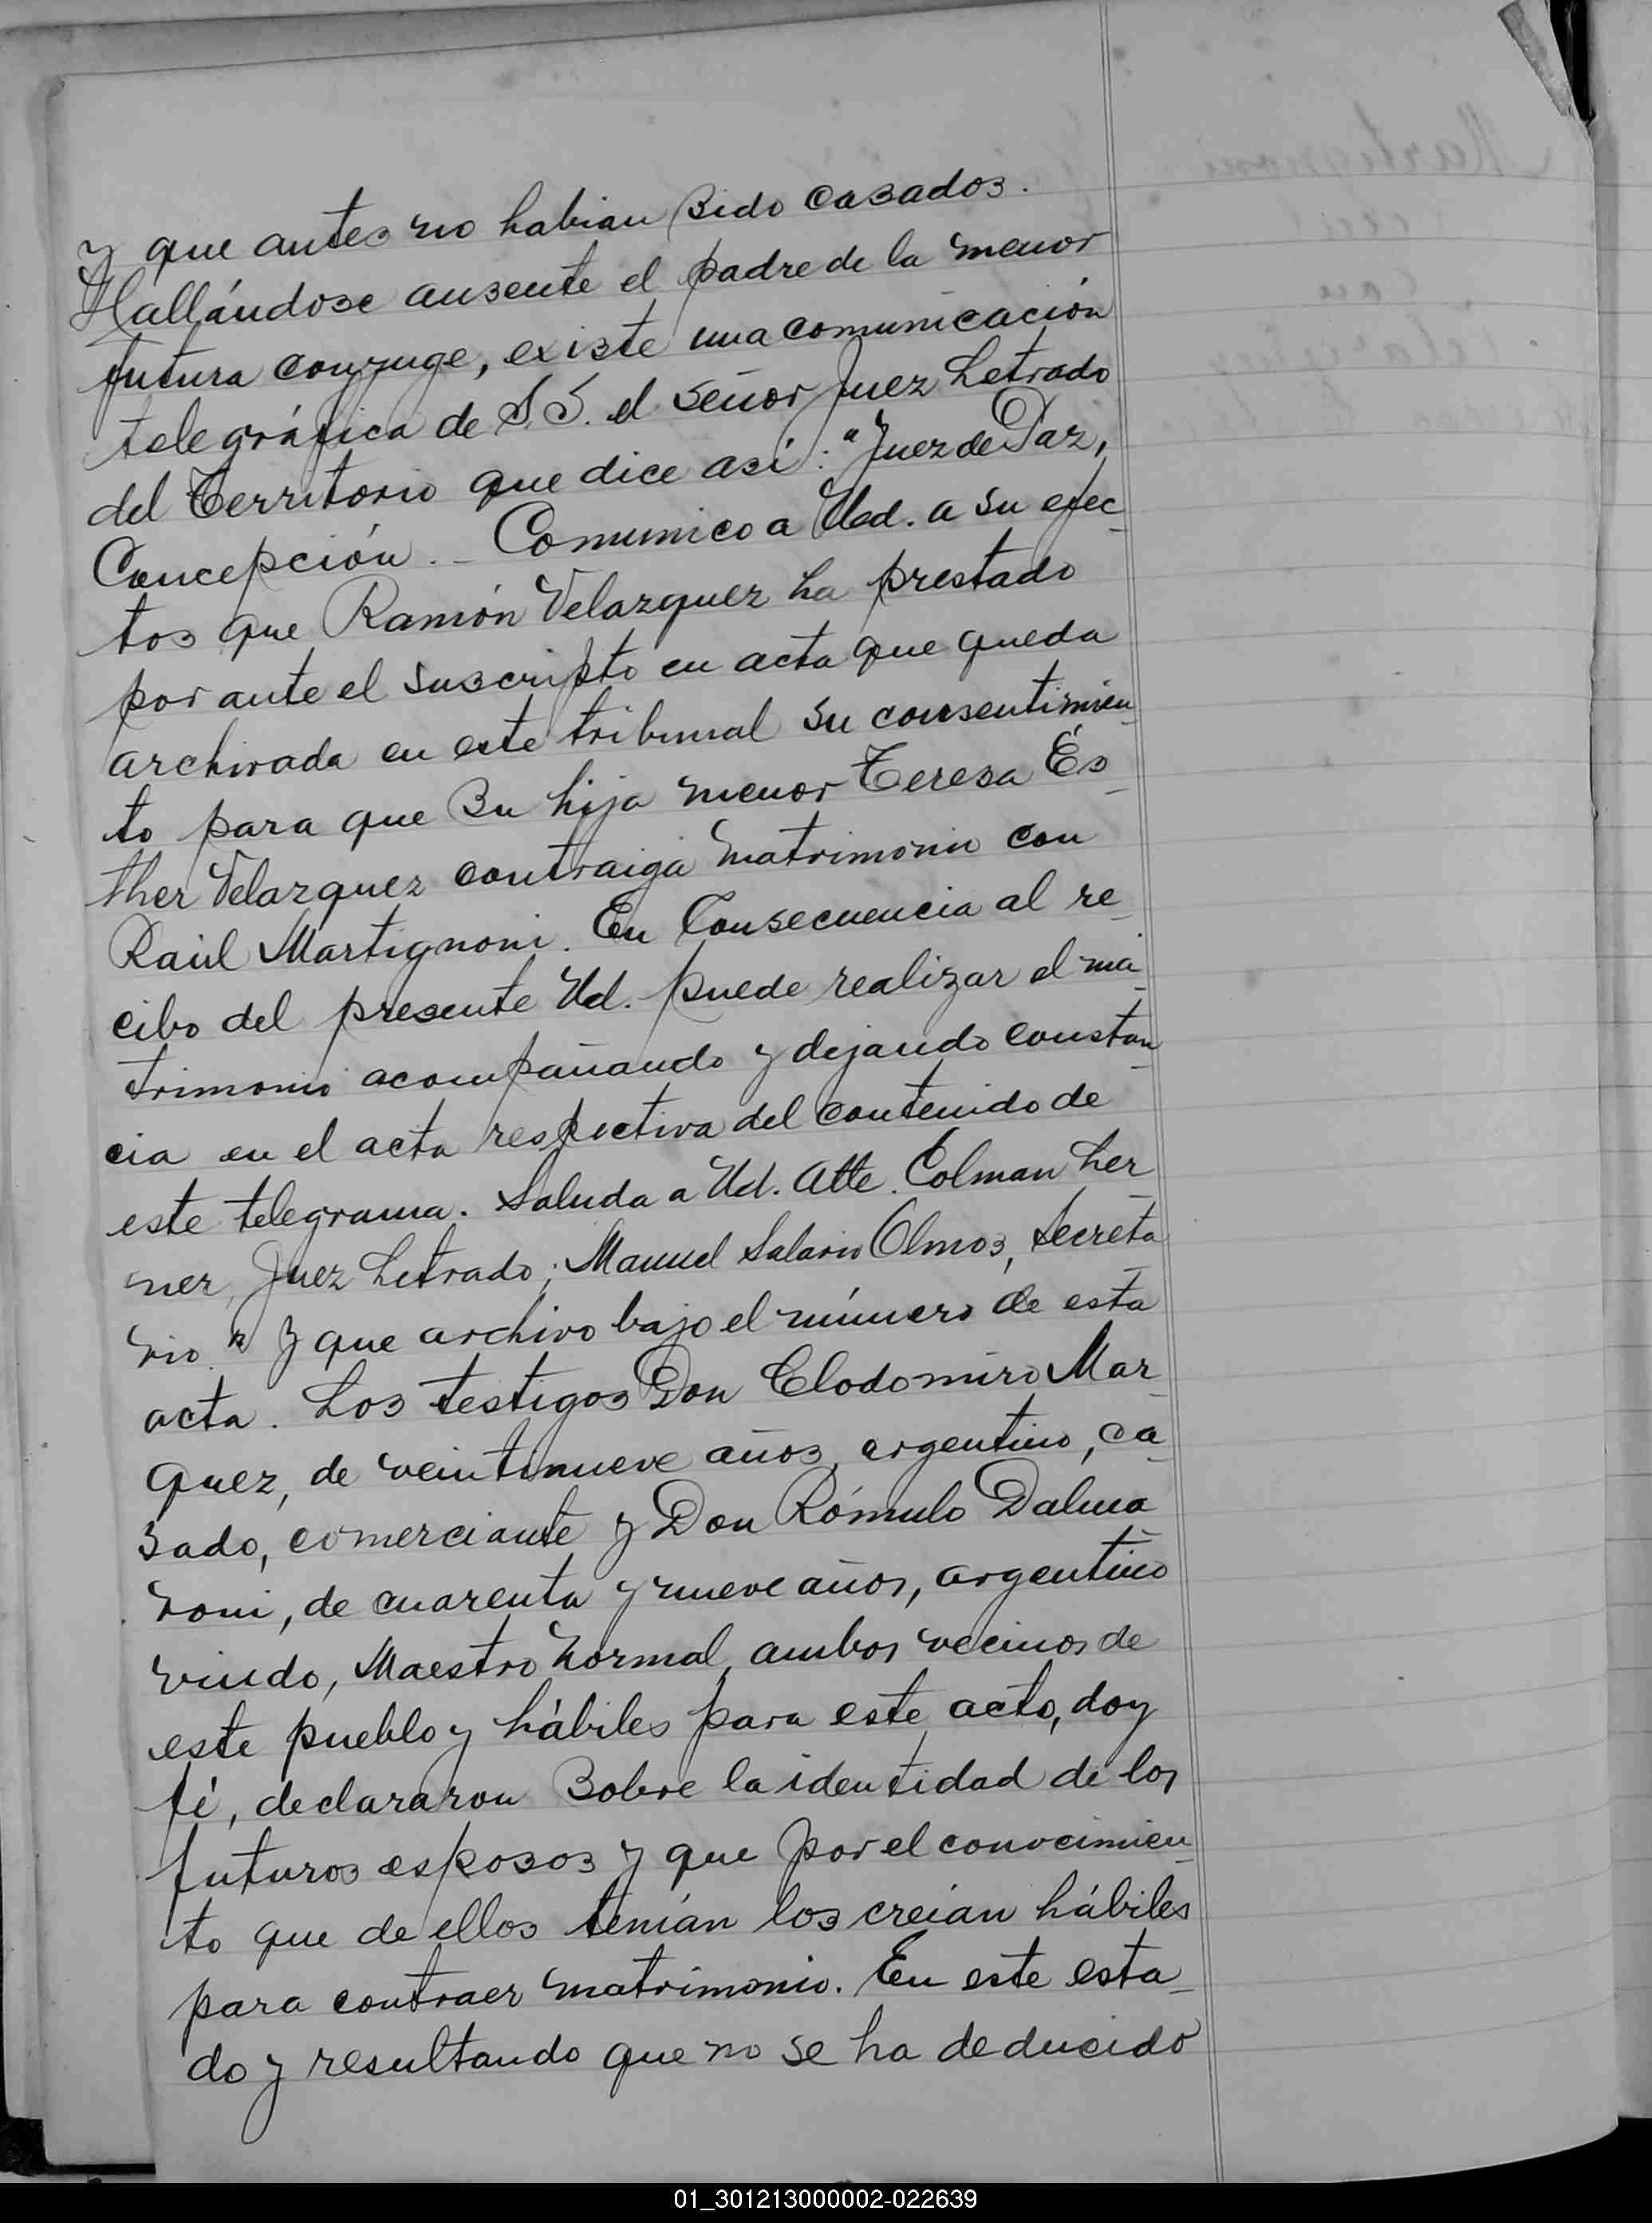 y que antes no habian sido casados.
Hallándose ausente el padre de la menor
futura conyuge, existe una comunicación
telegráfica de S.S. el señor Juez Letrado
del Territorio que dice así: "Juez de Paz,
Concepción.- Comunico a Ud. a su efec-
tos que Ramón Velazquez ha prestado
por ante el suscripto en acta que queda
archivada en este tribunal su consentimien-
to para que su hija menor Teresa Es-
ther Velazquez contraiga matrimonio con
Raúl Martignoni. En Consecuencia al re-
cibo del presente Ud. puede realizar el ma-
trimonio acompañando y dejando constan-
cia en el acta respectiva del contenido de
este telegrama. Saluda a Ud. Atte. Colman Ler-
ner, Juez Letrado; Manuel Salario Olmos, Secreta-
rio." Y que archivo bajo el número de esta
acta. Los testigos Don Clodomiro Mar-
quez, de veintinueve años, argentino, ca-
sado, comerciante y Don Rómulo Dalma-
roni, de cuarenta y nueve años, argentino
viudo, Maestro Normal, ambos vecinos de
este pueblo y hábiles para este acto, doy
fé, declararon sobre la identidad de los
futuros esposos y que por el conocimien-
to que de ellos tenían los creían hábiles
para contraer matrimonio. En este esta-
do y resultando que no se ha deducido
01_301213000002-022639